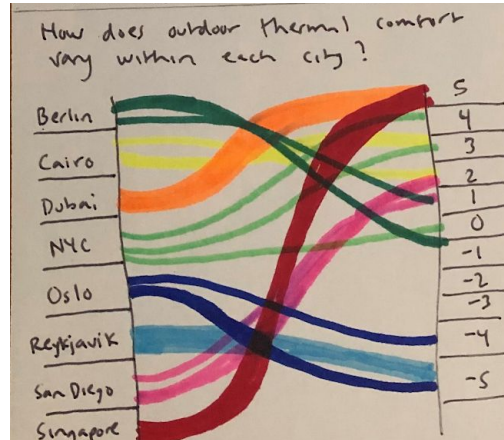 How does outdoor thermal comfort
vary within each city?
Berlin
Cairo
Dubai
NYC
Oslo
Reykjavik
San Diego
Singapore
5
4
3
2
1
0
-1
-2
-3
-4
-5